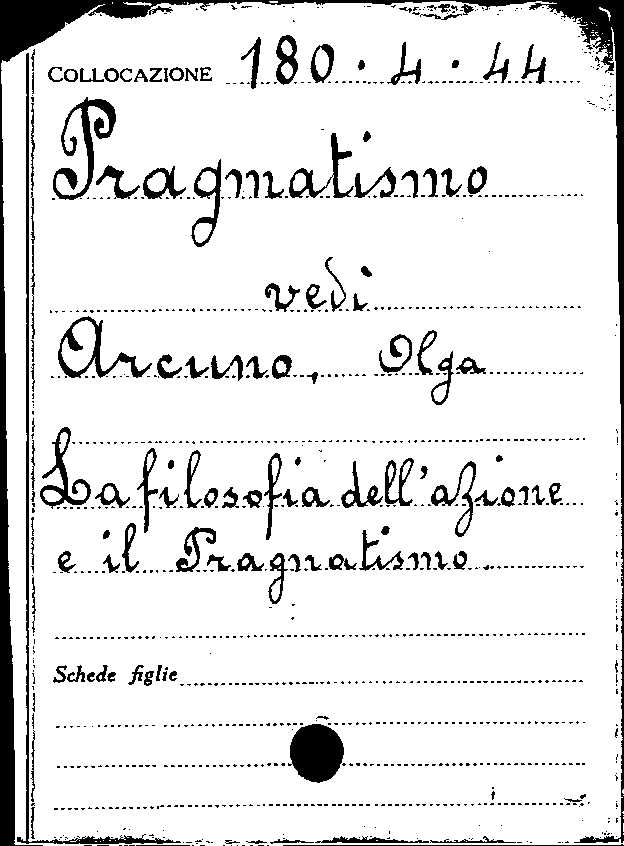 COLLOCAZIONE 180 · 4 · 44
Pragmatismo
vedi
Arcuno, Olga
La filosofia dell'azione
e il Pragnatismo.
Schede figlie